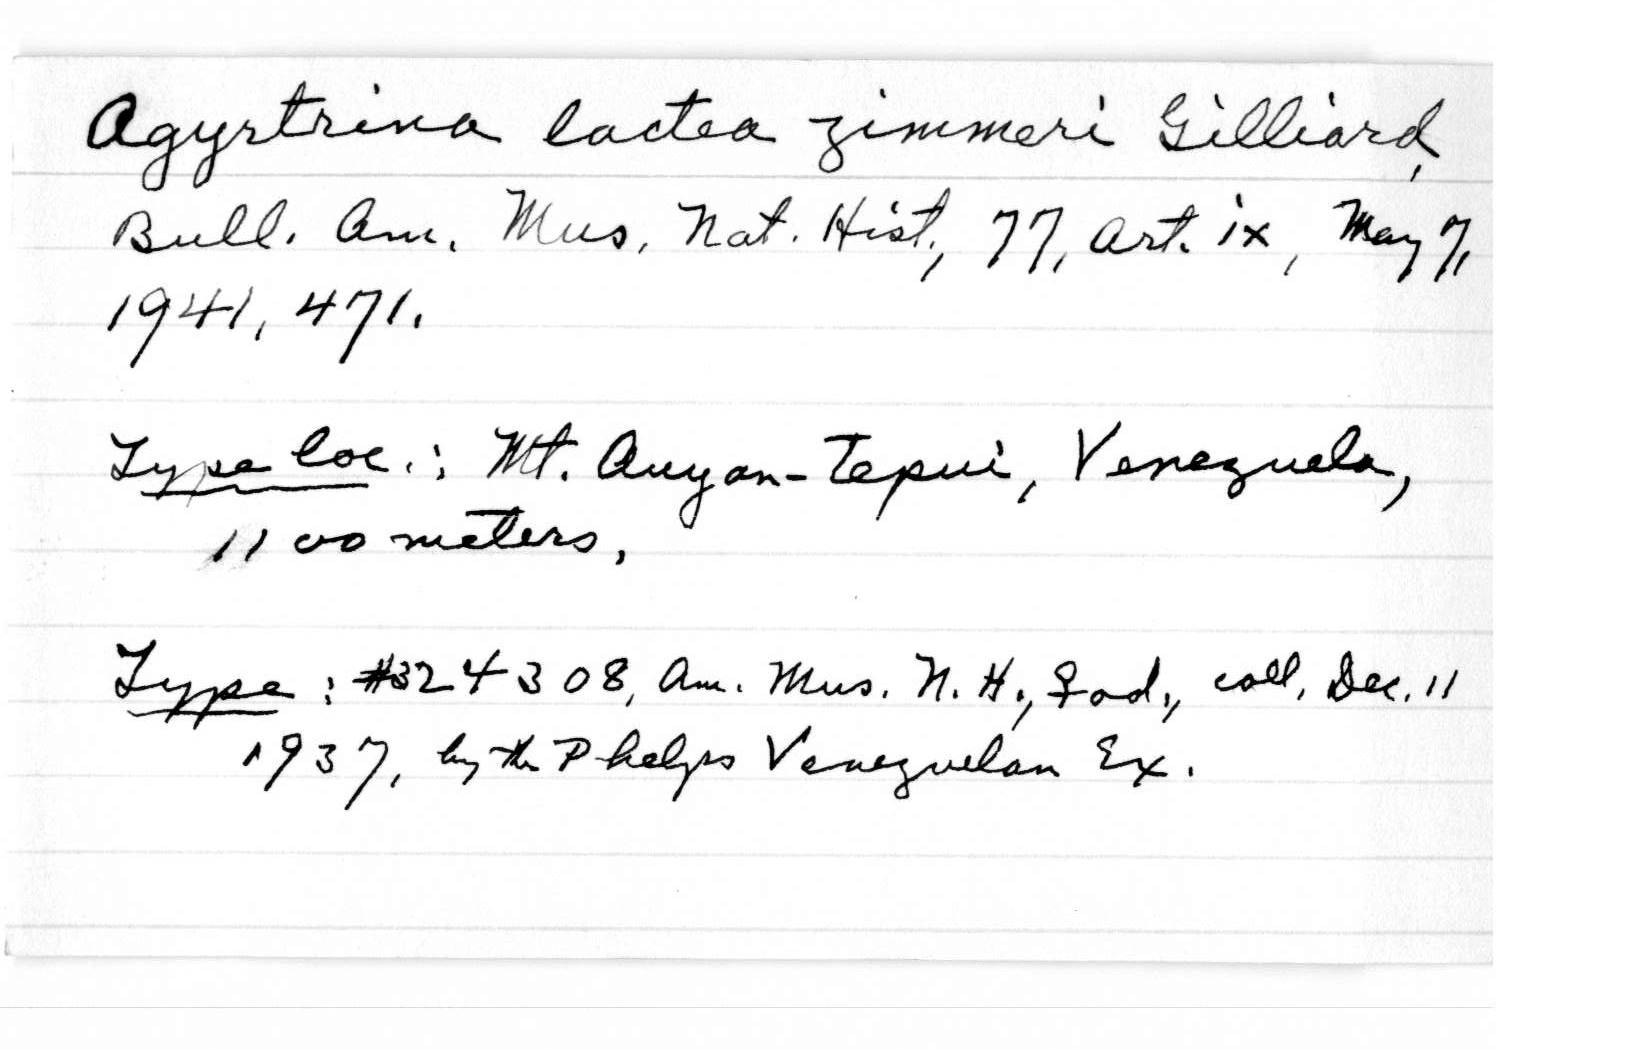 Agyrtrina lactea zimmeri Gilliard,
Bull. Am. Mus. Nat. Hist., 77, Art. ix, May 7,
1941, 471.
Type loc.: Mt. Auyan-Tepui, Venezuela,
1100 meters.
Type: #324308, Am. Mus. N. H., ♀ ad., coll. Dec. 11
1937, by the Phelps Venezuelan Ex.